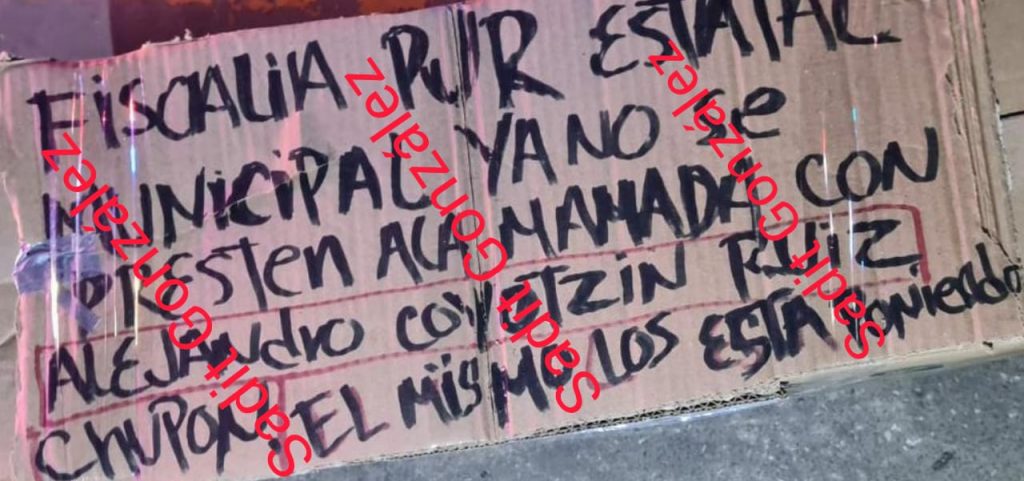 FiSCALiA PUR ESTATAL
MUNiCiPAL YA NO se
PRESTen ACA MAMADA CON
ALEJANdro COYETZIN RUIZ
CHUPON EL MiSMO LOS ESTA PONiendo
Sadit González
Sadit González
Sadit González